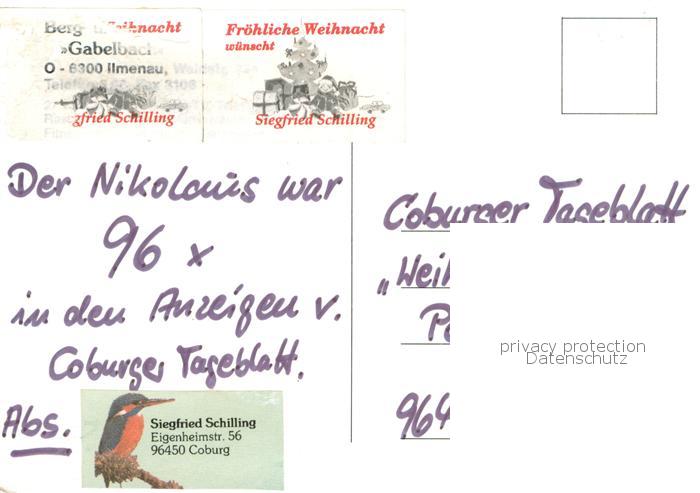 Berg- u.
Weihnacht
»Gabelbach
O - 6300 Ilmenau,
3106
gfried Schilling
Fröhliche Weihnacht
wünscht
Siegfried Schilling
Der Nikolaus war
96 x
in den Anzeigen v.
Coburger Tageblatt.
Abs.
Siegfried Schilling
Eigenheimstr. 56
96450 Coburg
Coburger Tageblatt
privacy protection
Datenschutz